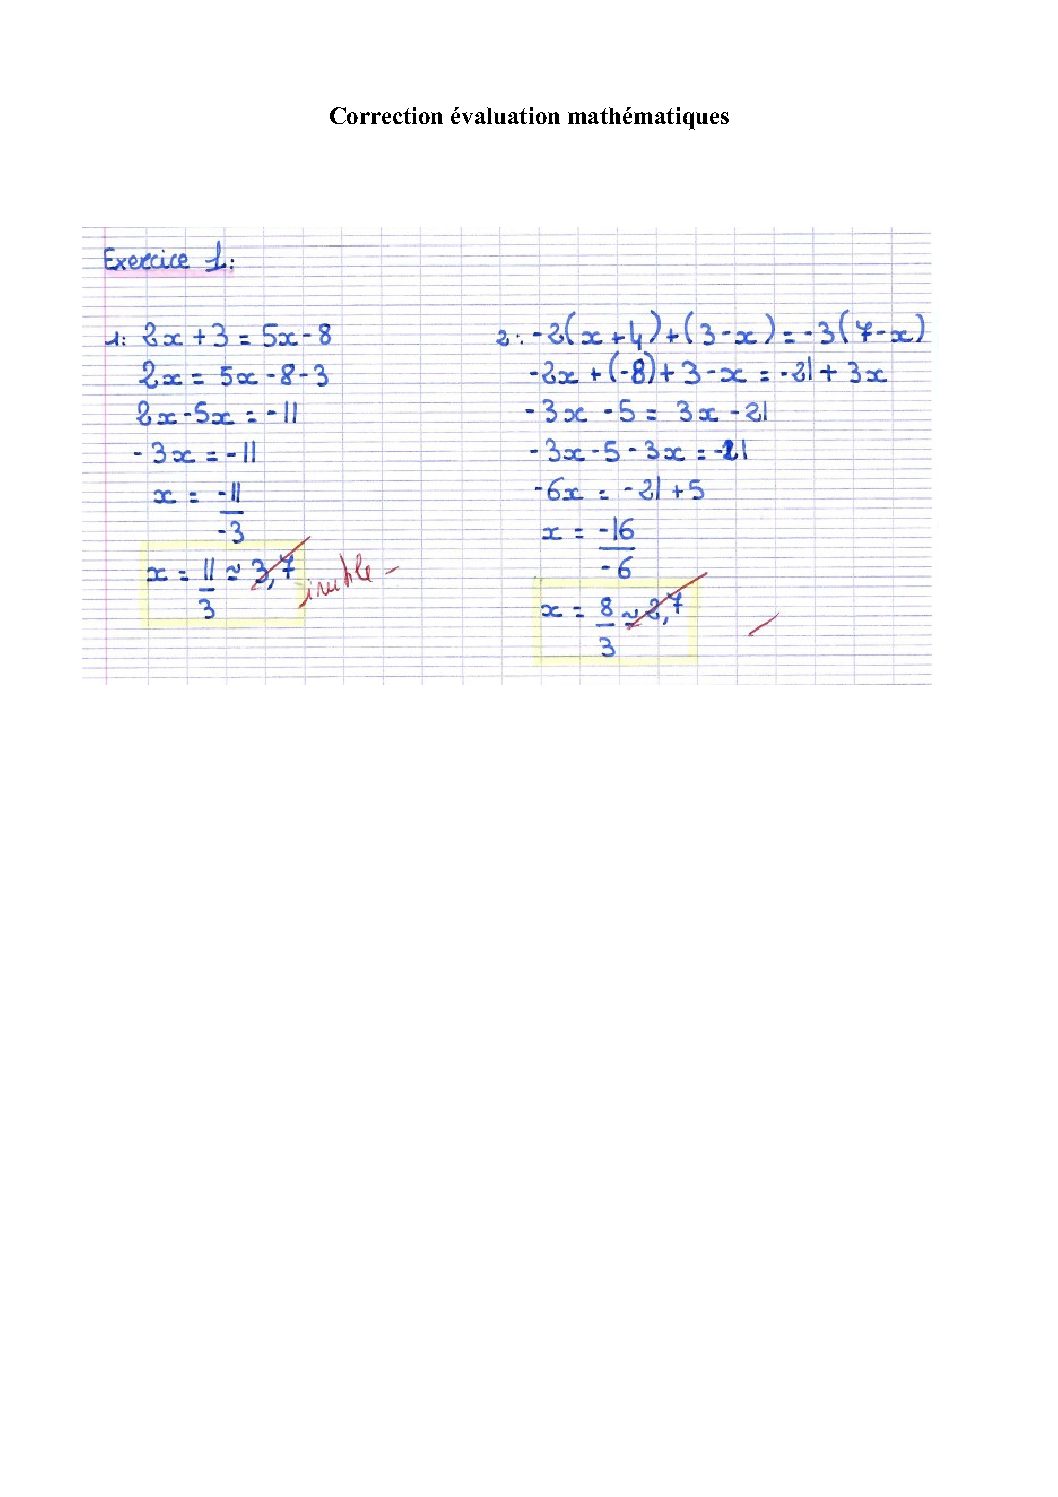 Correction évaluation mathématiques
Exercice 1:
1: 2x + 3 = 5x - 8
2x = 5x - 8 - 3
2x - 5x = - 11
- 3x = - 11
x = -11/-3
x = 11/3 ≈ 3,7 inutile -
2: -2(x + 4) + (3 - x) = -3(7 - x)
-2x + (-8) + 3 - x = -21 + 3x
- 3x - 5 = 3x - 21
- 3x - 5 - 3x = -21
-6x = -21 + 5
x = -16/-6
x = 8/3 ≈ 2,7